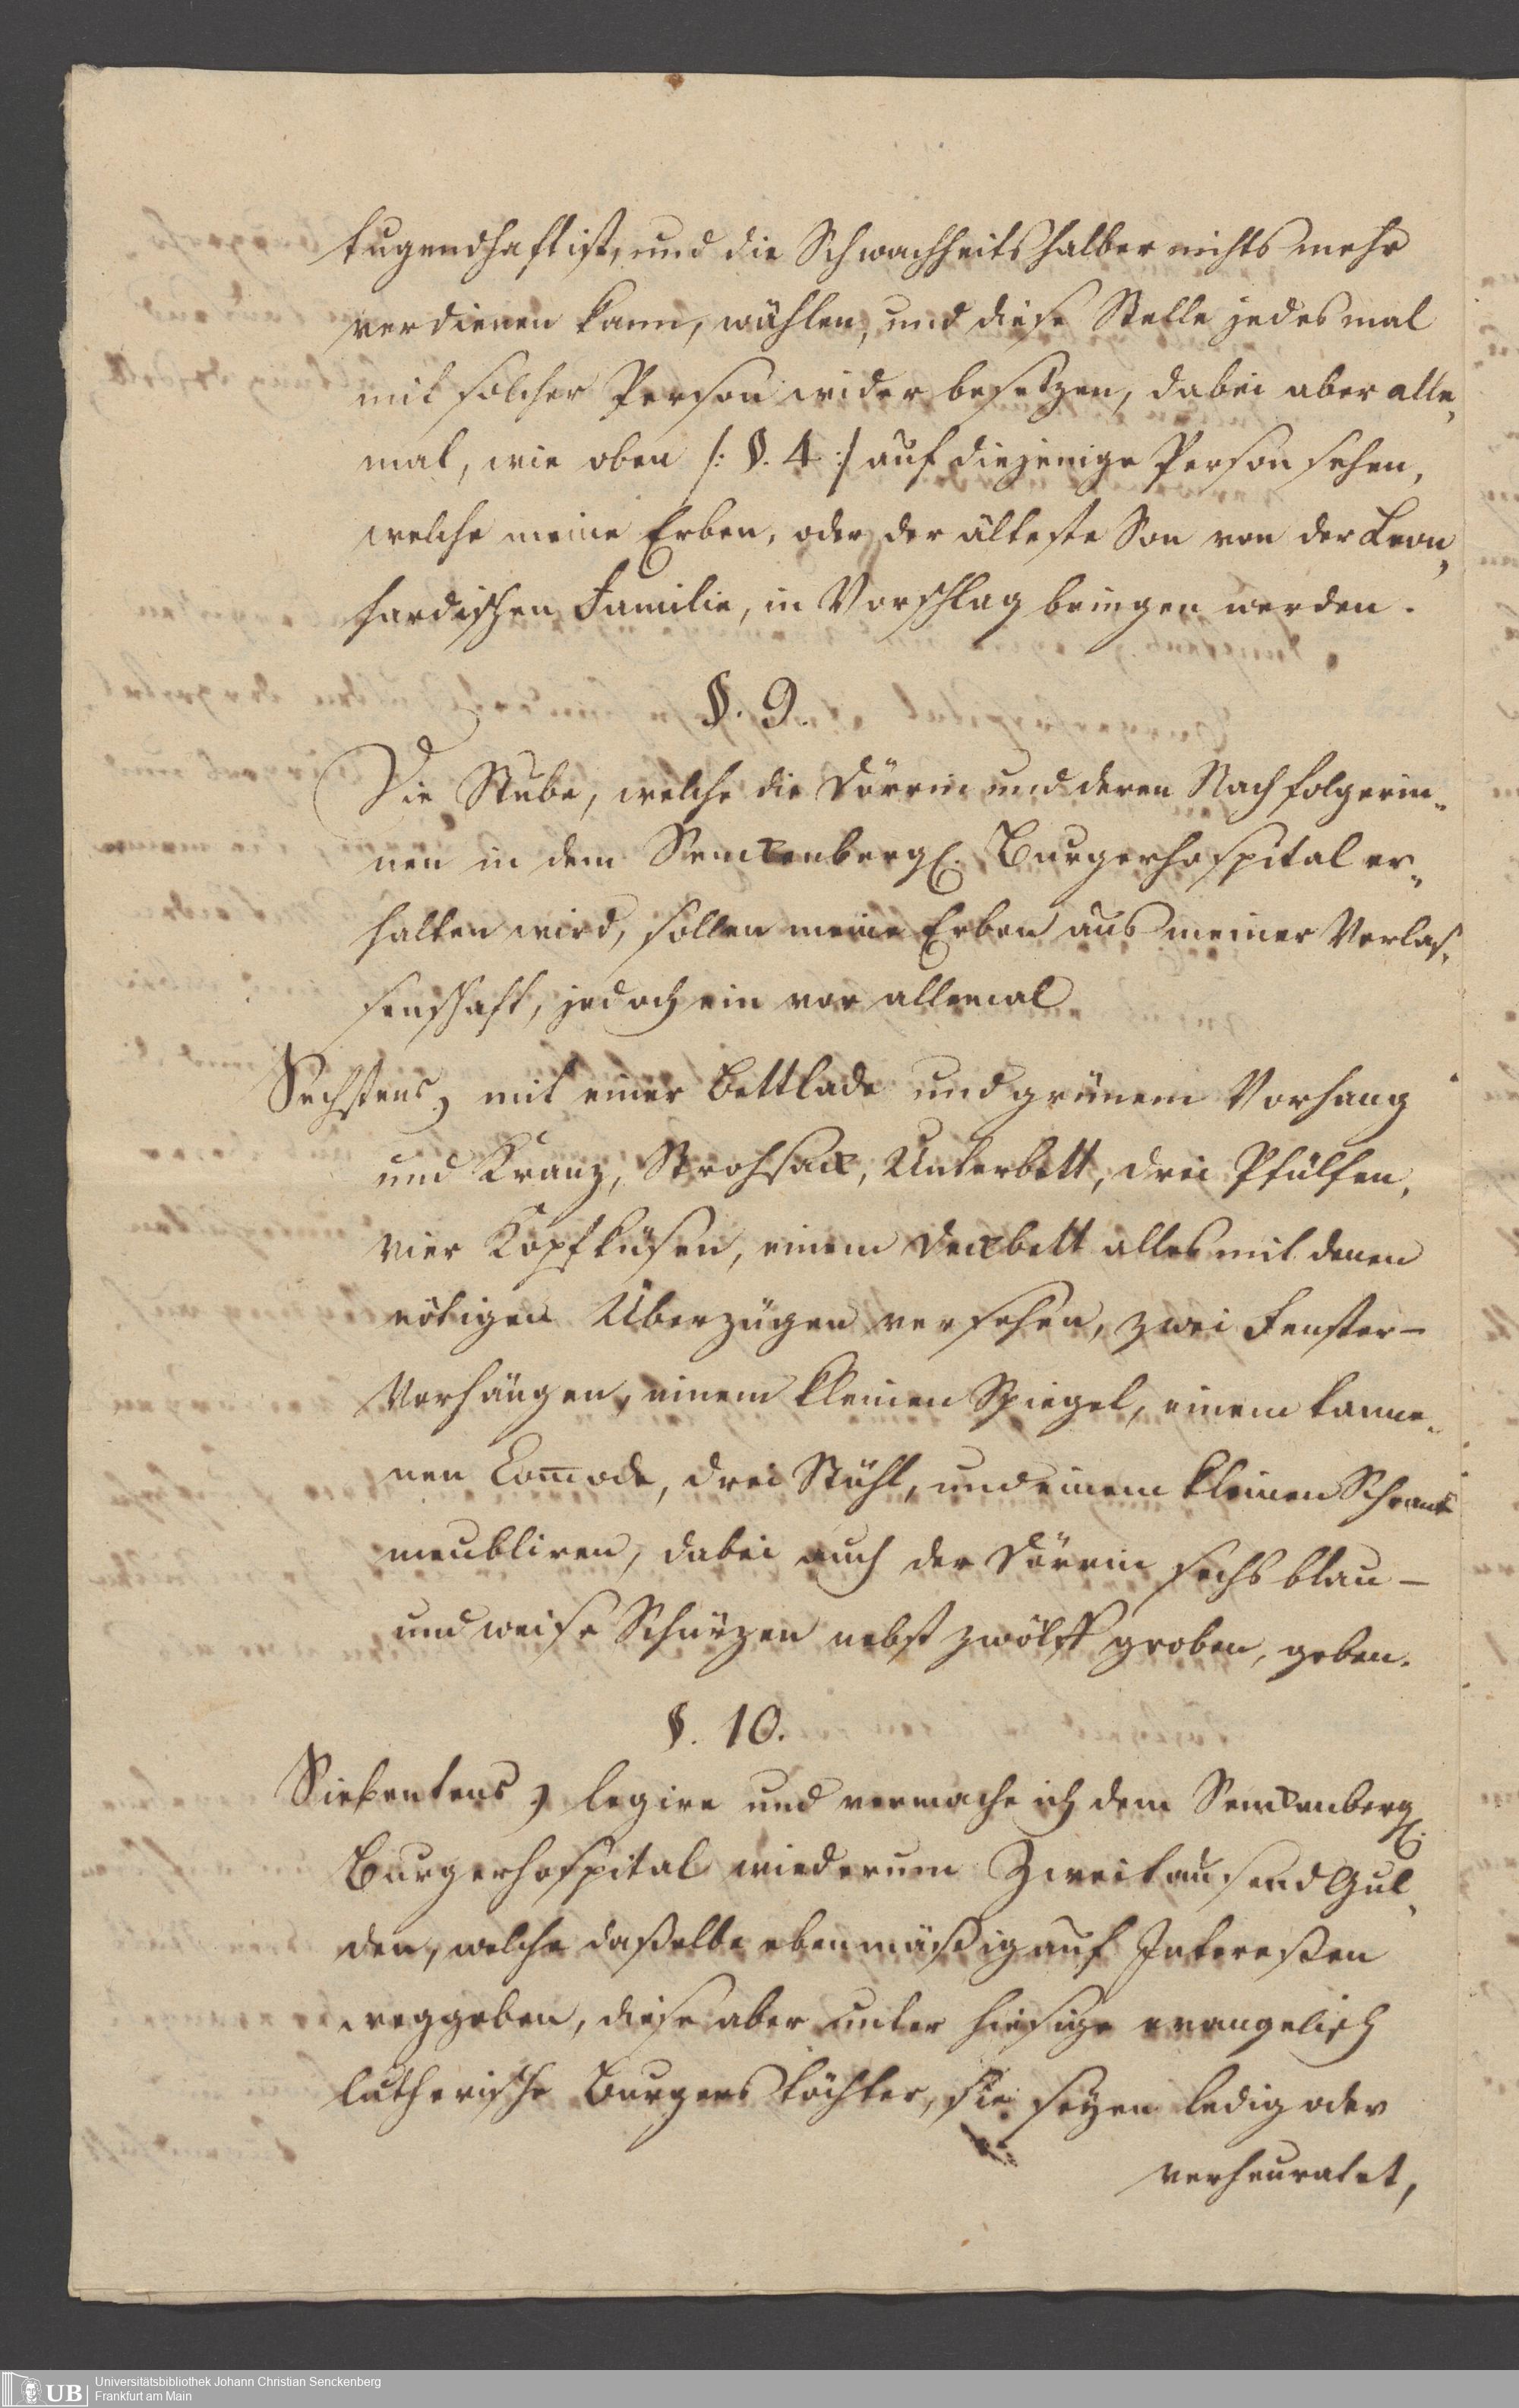 tugendhaft ist, und die Schwachheitshalber nichts mehr
verdienen kann, wählen, und diese Stelle jedesmal
mit solcher Person wider besetzen, dabei aber alle„
mal, wie oben /: §. 4 :/ auf diejenige Person sehen,
welche meine Erben, oder der älteste Son von der Leon„
hardischen Familie, in Vorschlag bringen werden.
§. 9.
Die Stube, welche die Dörrin und deren Nachfolgerin„
nen in dem Senckenberg. Burgerhospital er„
halten wird, sollen meine Erben aus meiner Verlas„
senschaft, jedoch ein vor allemal
Sechstens, mit einer Bettlade und grünem Vorhang
und Kranz, Strohsack, Unterbett, drei Pfülfen,
vier Kopfküsen, einem Deckbett alles mit denen
nötigen Überzügen versehen, zwei Fenster-
Vorhängen, einem kleinen Spiegel, einem tanne„
nen Com̅ode, drei Stühl, und einem kleinen Schrank
meubliren, dabei auch der Dörrin sechs blau-
und weise Schürzen nebst zwölff groben, geben.
§. 10.
Siebentens, legire und vermache ich dem Senckenberg.
Burgerhospital wiederum Zweitausend Gul„
den, welche daßelbe ebenmäßig auf Intereßen
weggeben, diese aber unter hiesige evangelisch
lutherische Burgers töchter, sie seyen ledig oder
verheuratet,
Universitätsbibliothek Johann Christian Senckenberg
Frankfurt am Main
UB